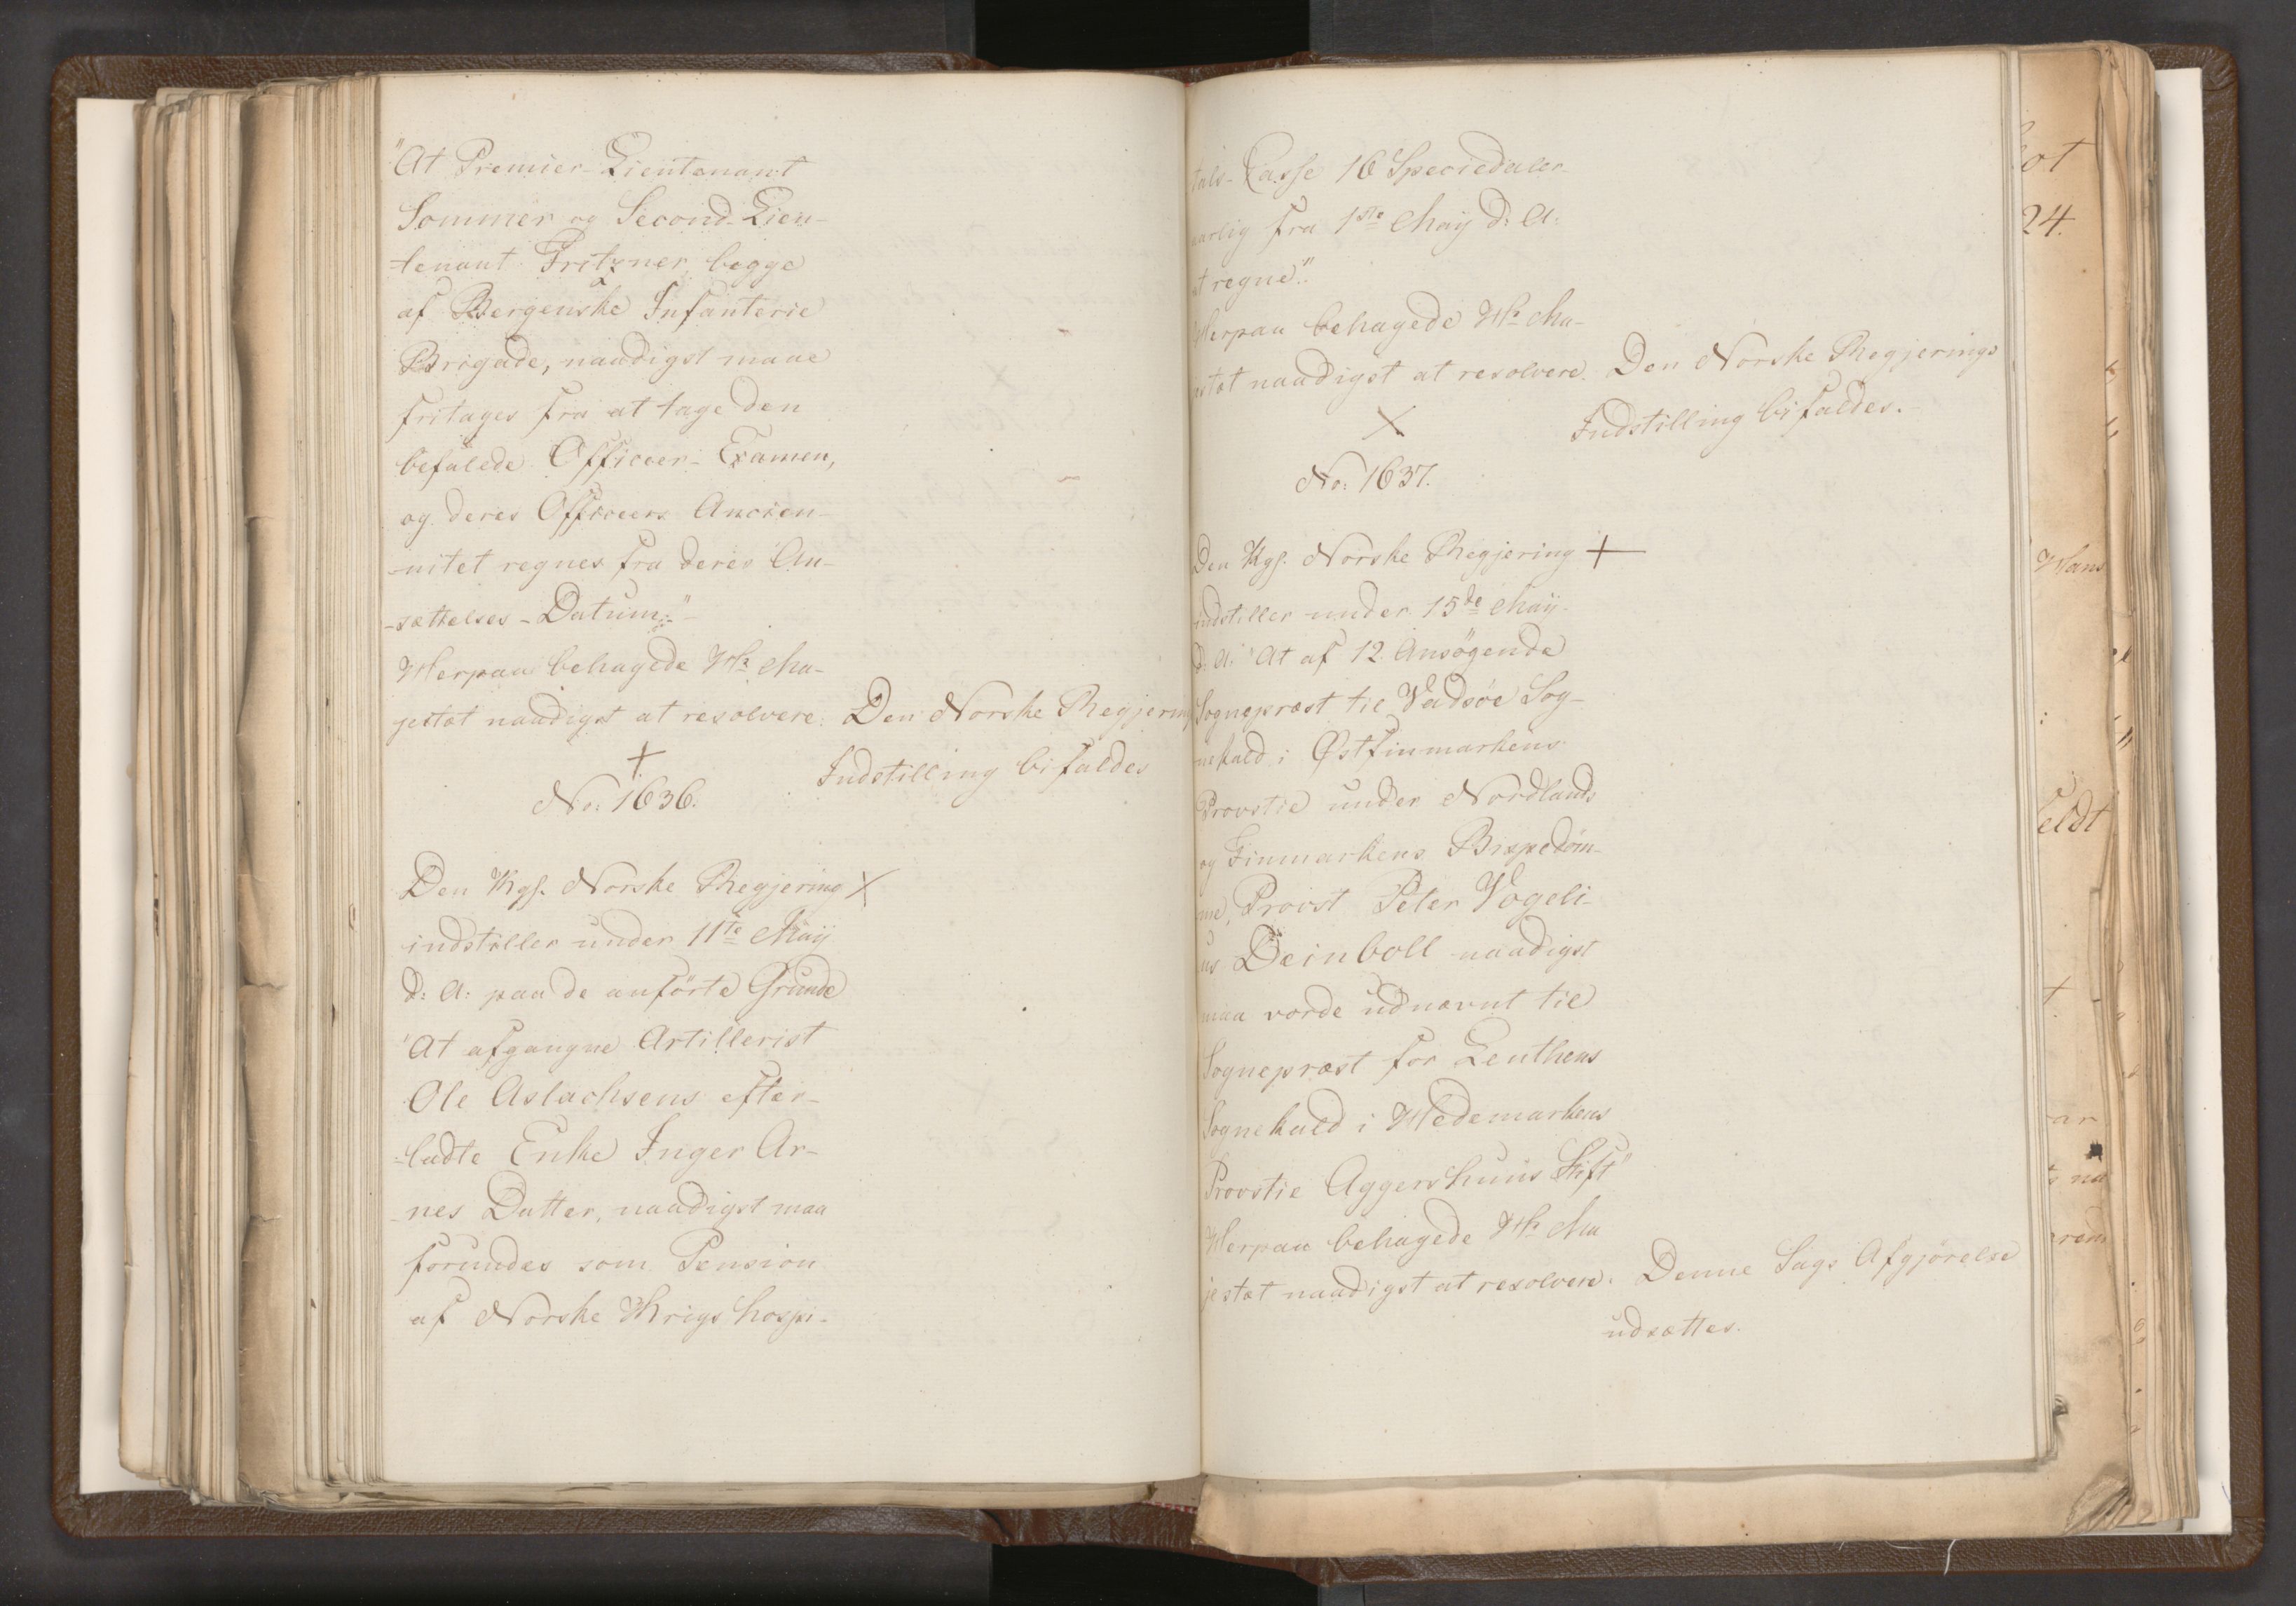 "At Premier-Lieutenant
Sommer og Second-Lieu-
-tenant Fritzner, begge
af Bergenske Infanterie
Brigade, naadigst maae
fritages fra at tage den
befalede Officeer-Examen,
og deres Officeers Ancien-
-nitet regnes fra deres An-
-sættelses-Datum."
Herpaa behagede Hs Ma-
jestæt naadigst at resolvere: Den Norske Regjerings
+ Indstilling bifaldes
No: 1636.
Den Kgl. Norske Regjering X
indstiller under 11te Maij
d: A: paa de anförte Grunde
"At afgangne Artillerist
Ole Aslachsens efter-
-ladte Enke Inger Ar-
-nes Datter, naadigst maa
forundes som Pension
af Norske Krigshospi-
tals-Casse 16 Speciedaler
aarlig fra 1ste Maij d: A:
at regne".
Herpaa behagede Hs Ma-
jestæt naadigst at resolvere. Den Norske Regjerings
X Indstilling bifaldes.
No: 1637.
Den Kgl. Norske Regjering +
indstiller under 15de Maij
d: A: "At af 12 Ansögende
Sognepræst til Vadsöe Sog-
nekald i Østfinmarkens
Provstie under Nordlands
og Finmarkens Bispedöm-
me, Provst Peter Vogeli-
us Deinboll naadigst
maa vorde udnævnt til
Sognepræst for Leuthens
Sognekald i Hedemarkens
Provstie Aggershuus Stift"
Herpaa behagede Hs Ma
jestæt naadigst at resolvere: Denne Sags Afgjörelse
udsættes.
24.
Hans
eldt